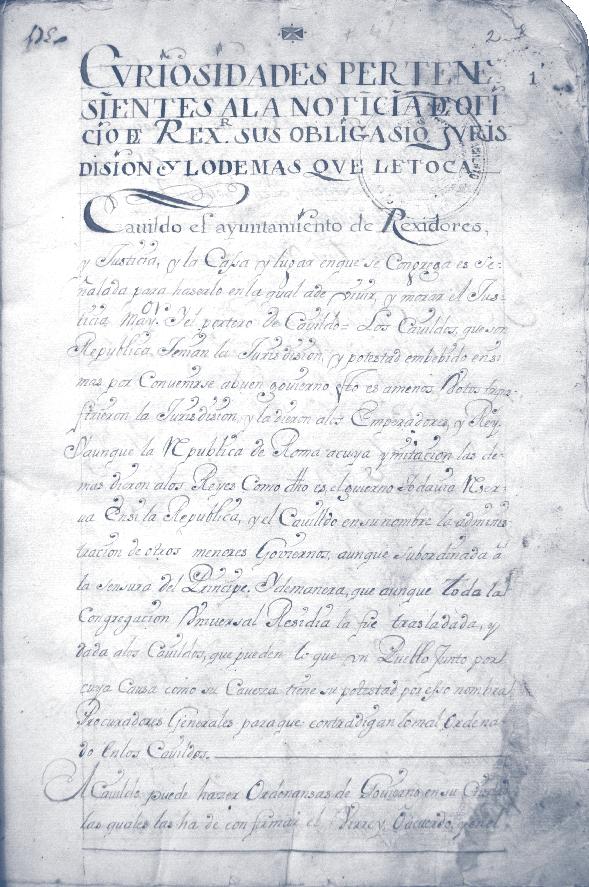 CVRIOSIDADES PERTENE
SIENTES ALA NOTICIA DE OFI
CIO DE REX.R SUS OBLIGASIO, IVRIS
DISION Y LO DEMAS QVE LE TOCA
Cauildo es ayuntamiento de Rexidores,
y Justicia, y la Casa y lugar enque se Congrega es Se-
ñalada para hazerlo en la qual ade viuir, y morar el Jus-
ticia may.or Y el portero de Cauildo= Los Cauildos, que son
Republica, tenian la Jurisdision, y potestad embebido ensi
mas por Conuenirse abuen gouierno
firieron la Jurisdision, y la dieron alos Emperadores, y Rey.
Yaunque la Republica de Roma acuya ymitacion las de-
mas dieron alos Reyes Como dho es, el guierno todauia
ua Ensi la Republica, y el Cauilldo ensu nombre la adminis
tracion de otros menores Gouiernos, aunque subordinada à
la sensura del Principe. Ydemanera, que aunque toda la
Congregacion Vniversal Residia la fue trasladada, y
dada alos Cauildos, que pueden lo que vn Pueblo Junto por
cuya Causa como su Caueza tiene su potestad por esso nombra
Procuradores Generales paraque contradigan lo mal Ordena-
do Enlos Cauildos.
Cauildo puede hazer Ordenansas de Gouierno en su
las quales las ha de confirmar el Virrey
2
1